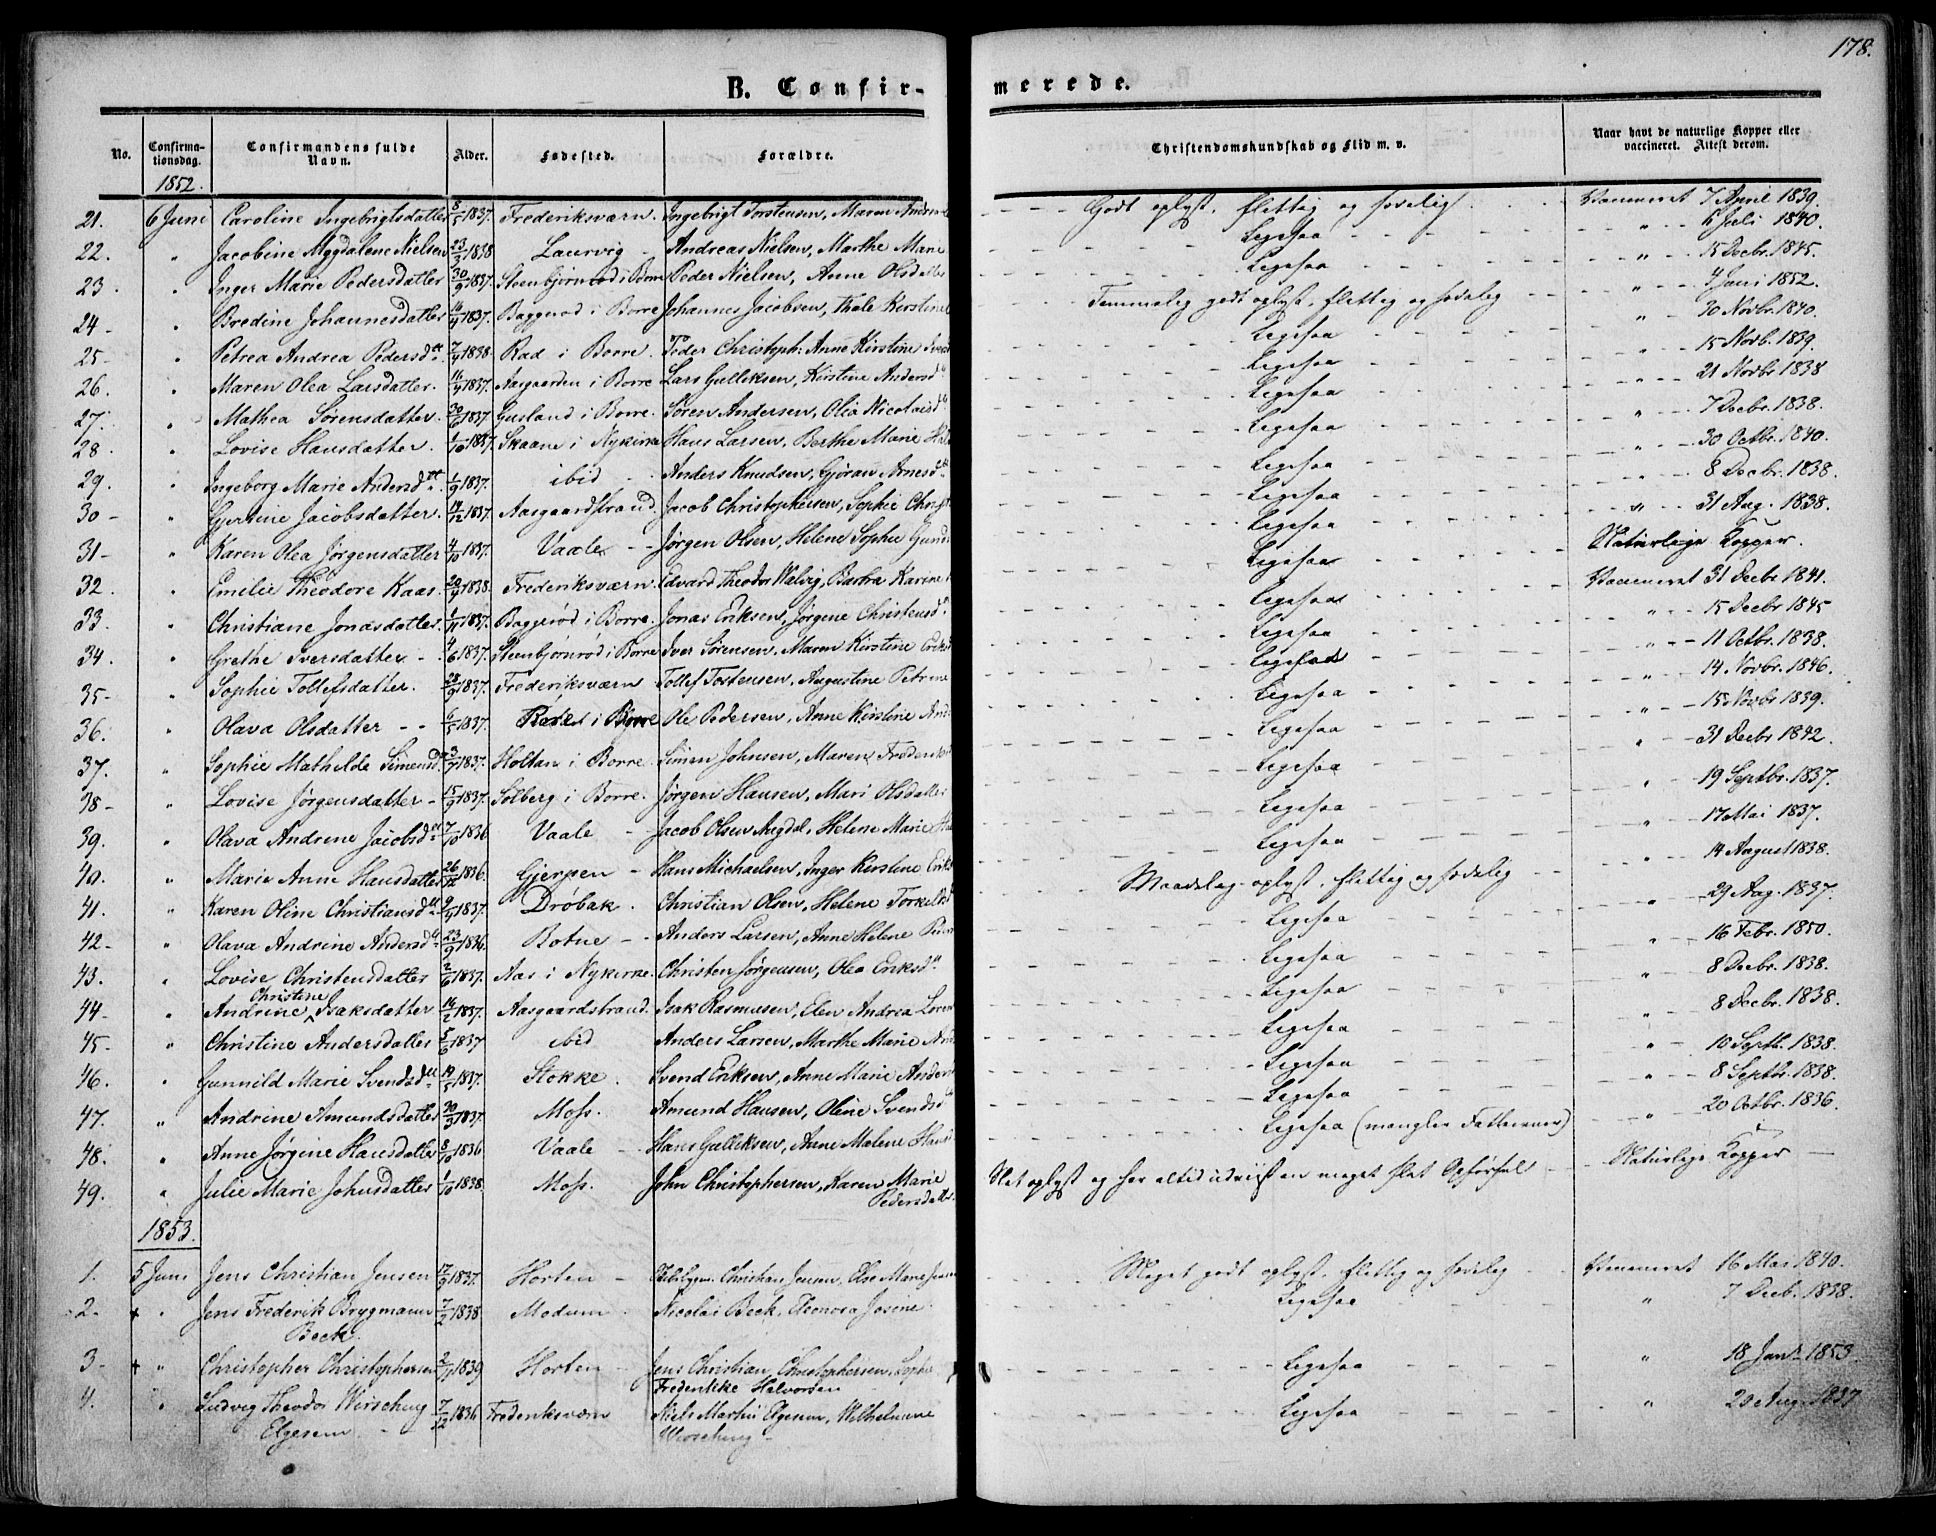 178.
B. Confir- merede.
No. Confirma-tionsdag. Confirmandens fulde Navn. Alder. Fødested. Forældre. Christendomskundskab og Flid m. v. Naar havt de naturlige Kopper eller vaccineret. Attest derom.
1852.
21. 6 Juni Caroline Ingebrigtsdatter 8/5 1837. Frederiksværn. Ingebrigt Torstensen, Maren Godt oplyst, flittig og sædelig Vaccineret 7 April 1839.
22. " Jacobine Magdalene Nielsen 23/3 1838 Laurvig Andreas Nielsen, Marthe Marie Ligesaa " 5 Juli 1840.
23. " Inger Marie Pedersdatter 30/9 1837. Steenbjørnrød i Borre Peder Nielsen, Anne Olsdatter Ligesaa " 15 Decbr. 1845.
24 " Bredine Johannesdatter 14/9 1837. Baggerød i Borre Johannes Jacobsen, Thale Kirstine Temmelig godt oplyst, flittig og sædelig " 4 Juni 1852.
25 " Petrea Andrea Pedersdtt 7/4 1838. Rød i Borre. Peder Christoph: Anne Kirstine Ligesaa " 30 Novbr. 1840.
26. " Maren Olea Larsdatter. 16/9 1837. Aasgaarden i Borre Lars Gulliksen, Kirstine Andersd Ligesaa " 15 Novb. 1839.
27. " Mathea Sørensdatter. 30/6 1837 Gusland i Borre. Søren Andersen, Olia Nicolaisd Ligesaa " 21 Novbr 1838
28 " Lovise Hansdatter. 1/10 1837 Skaane i Nykirke Hans Larsen, Berthe Marie Ligesaa " 7 Decbr. 1838.
29. " Ingeborg Marie Andersdtt 1/9 1837. ibid Anders Knudsen, Gjøran Arnesd Ligesaa " 30 Octbr. 1840.
30 " Gjertine Jacobsdatter. 14/12 1837. Aasgaardstrand. Jacob Christophersen, Sophie Christ Ligesaa " 8 Decbr. 1838.
31 " Karen Olea Jørgensdatter 4/10 1837. Vaale Jørgen Olsen, Helene Sophie Gund Ligesaa " 31 Aug. 1838.
32. " Emilie Theodore Kaas. 20/4 1838. Frederiksværn. Edvard Theodor Walvig, Barbra Karine Ligesaa Naturlige Kopper.
33. " Christiane Jonasdatter. 1/11 1837. Baggerød i Borre. Jonas Eriksen, Jørgine Christensd Ligesaa Vaccineret 31 Decbr 1841.
34. " Grethe Iversdatter 4/6 1837. Steenbjørnrød i Borre Iver Sørensen, Maren Kirstine Eriksd Ligesaa " 15 Decbr 1845
35 " Sophie Tollefsdatter. 28/9 1837. Frederiksværn Tollef Tostensen, Augustine Petrine Ligesaa " 11 Octbr. 1838.
36. " Olava Olsdatter 6/5 1837. i Borre Ole Pedersen, Anne Kirstine Ligesaa " 14 Novbr. 1846.
37. " Sophie Mathilde Simensd 3/7 1837. Holtan i Borre. Simen Johnsen, Maren Ligesaa " 15 Novbr 1839.
38 " Lovise Jørgensdatter 15/9 1837. Solberg i Borre. Jørgen Hansen, Mari Olsdatter Ligesaa " 31 Decbr 1842.
39. " Olava Andrine Jacobsdtt 7/10 1836 Vaale Jacob Olsen Augdal, Helene Marie Ligesaa " 19 Septbr. 1837.
40. " Marie Anne Hansdatter 26/12 1836. Gjerpen Hans Michaelsen, Inger Kirstine Ligesaa " 17 Mai 1837.
41. " Karen Oline Christiansdtt 9/4 1837. Drøbak. Christian Olsen, Helene Torkelsd Maadelig oplyst, flittig og sædelig " 14 August 1838.
42 " Olava Andrine Andersdtt 23/9 1836. Botne Anders Larsen, Anne Helene Ligesaa " 29 Aug. 1837.
43. " Lovise Christensdatter 2/6 1837. Aas i Nykirke. Christen Jørgensen, Olea Eriksd Ligesaa " 16 Febr. 1850.
44 " Andrine Christine Isaksdatter 14/2 1837. Aasgaardstrand. Isak Rasmusen, Elen Andrea Loren Ligesaa " 8 Decbr. 1838.
45 " Christine Andersdatter 5/6 1837 ibid Anders Larsen, Marthe Marie Ligesaa " 8 Decbr. 1838.
46. " Gunnild Marie Svendsdtt 19/5 1837. Stokke. Svend Eriksen, Anne Marie Anders Ligesaa " 10 Septb. 1838.
47. " Andrine Amundsdatter 30/3 1837. Moss. Amund Hansen, Oline Svendsd Ligesaa " 8 Septbr. 1838.
48. " Anne Jørgine Hansdatter 8/10 1836 Vaale Hans Gulliksen, Anne Malene Ligesaa (mangler ) " 20 Octbr. 1836.
49. " Julie Marie Johnsdatter 1/10 1838. Moss. John Christophersen, Karen Marie Pedersdatter Slet oplyst og har altid udvist en meget slet Opførsel Naturlige Kopper
1853.
1. 5 Juni Jens Christian Jensen 17/9 1837. Horten Christian Jensen, Else Marie Meget godt oplyst, flittig og sædelig Vaccineret 16 Mai 1840.
2 + " Jens Frederik Brygmann Beck. 7/2 1838 Modum Nicolai Beck, Eleonora Josine. Ligesaa " 7 Decb. 1838.
3 + " Christopher Christophersen 2/7 1839 Horten Jens Christian Christophersen, Sophie Frederikke Halvorsen Ligesaa " 18 Janr 1853
4. " Ludvig Theodor Wirsching Elgesem 7/12 1836 Frederiksværn Niels Martin Elgesem, Wilhelmine Wirsching Ligesaa " 23 Aug. 1837